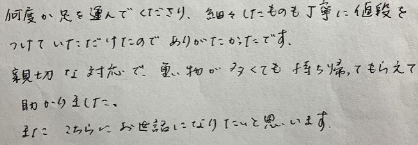 何度か足を運んでくださり、細々したものも丁寧に値段を
つけていただけたのでありがたかったです。
親切な対応で、重い物が多くても持ち帰ってもらえて
助かりました。
またこちらにお世話になりたいと思います。